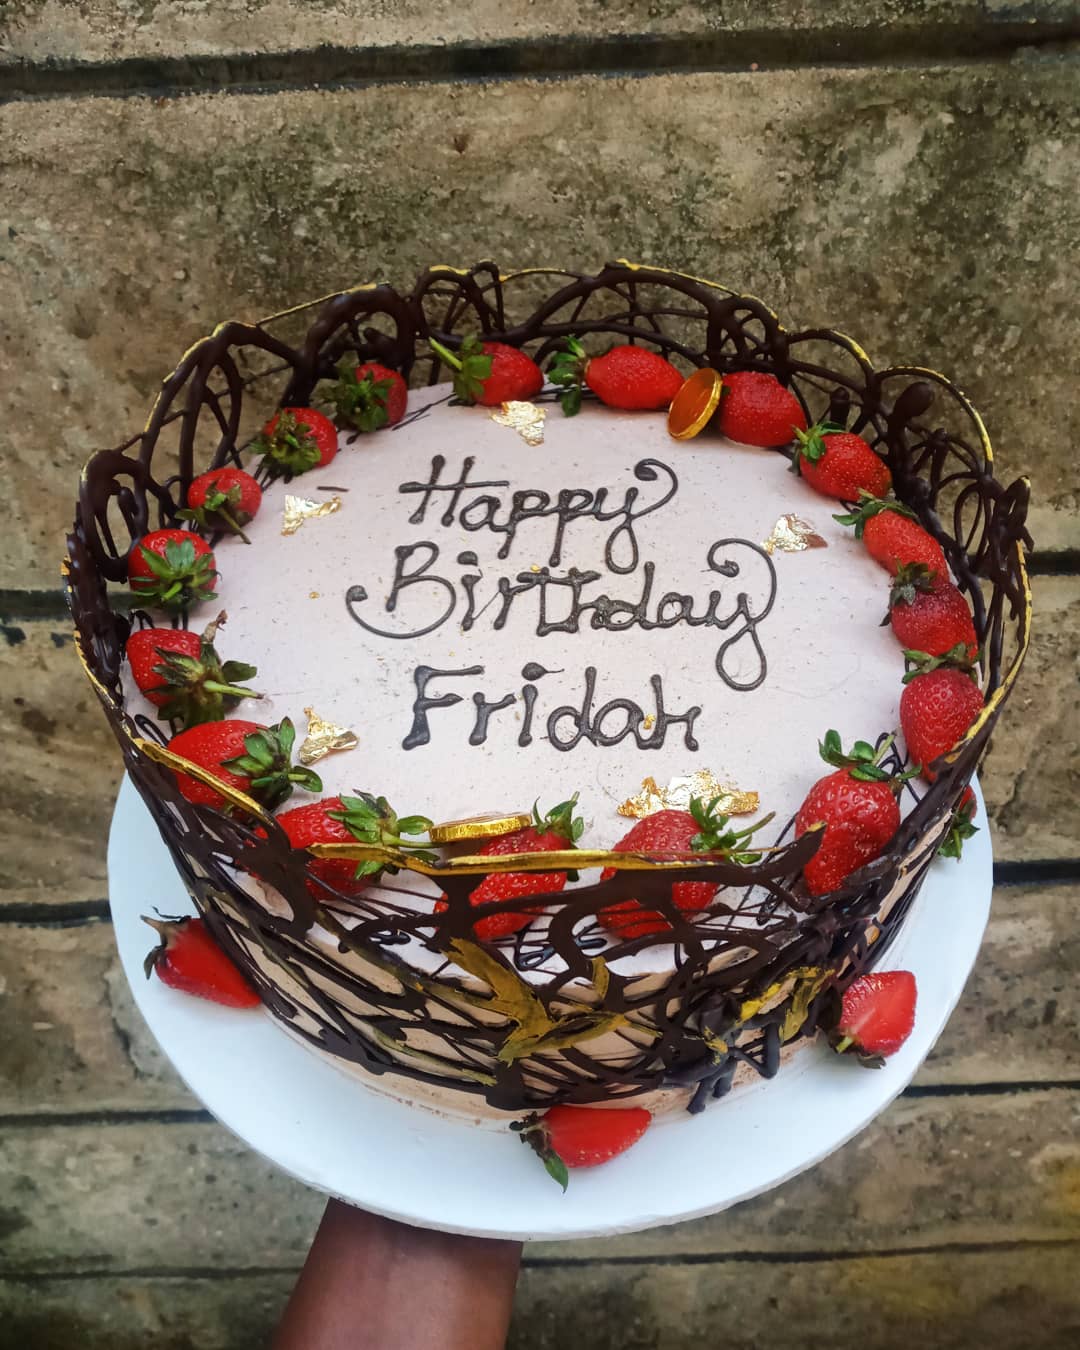 Happy
Birthday
Fridah